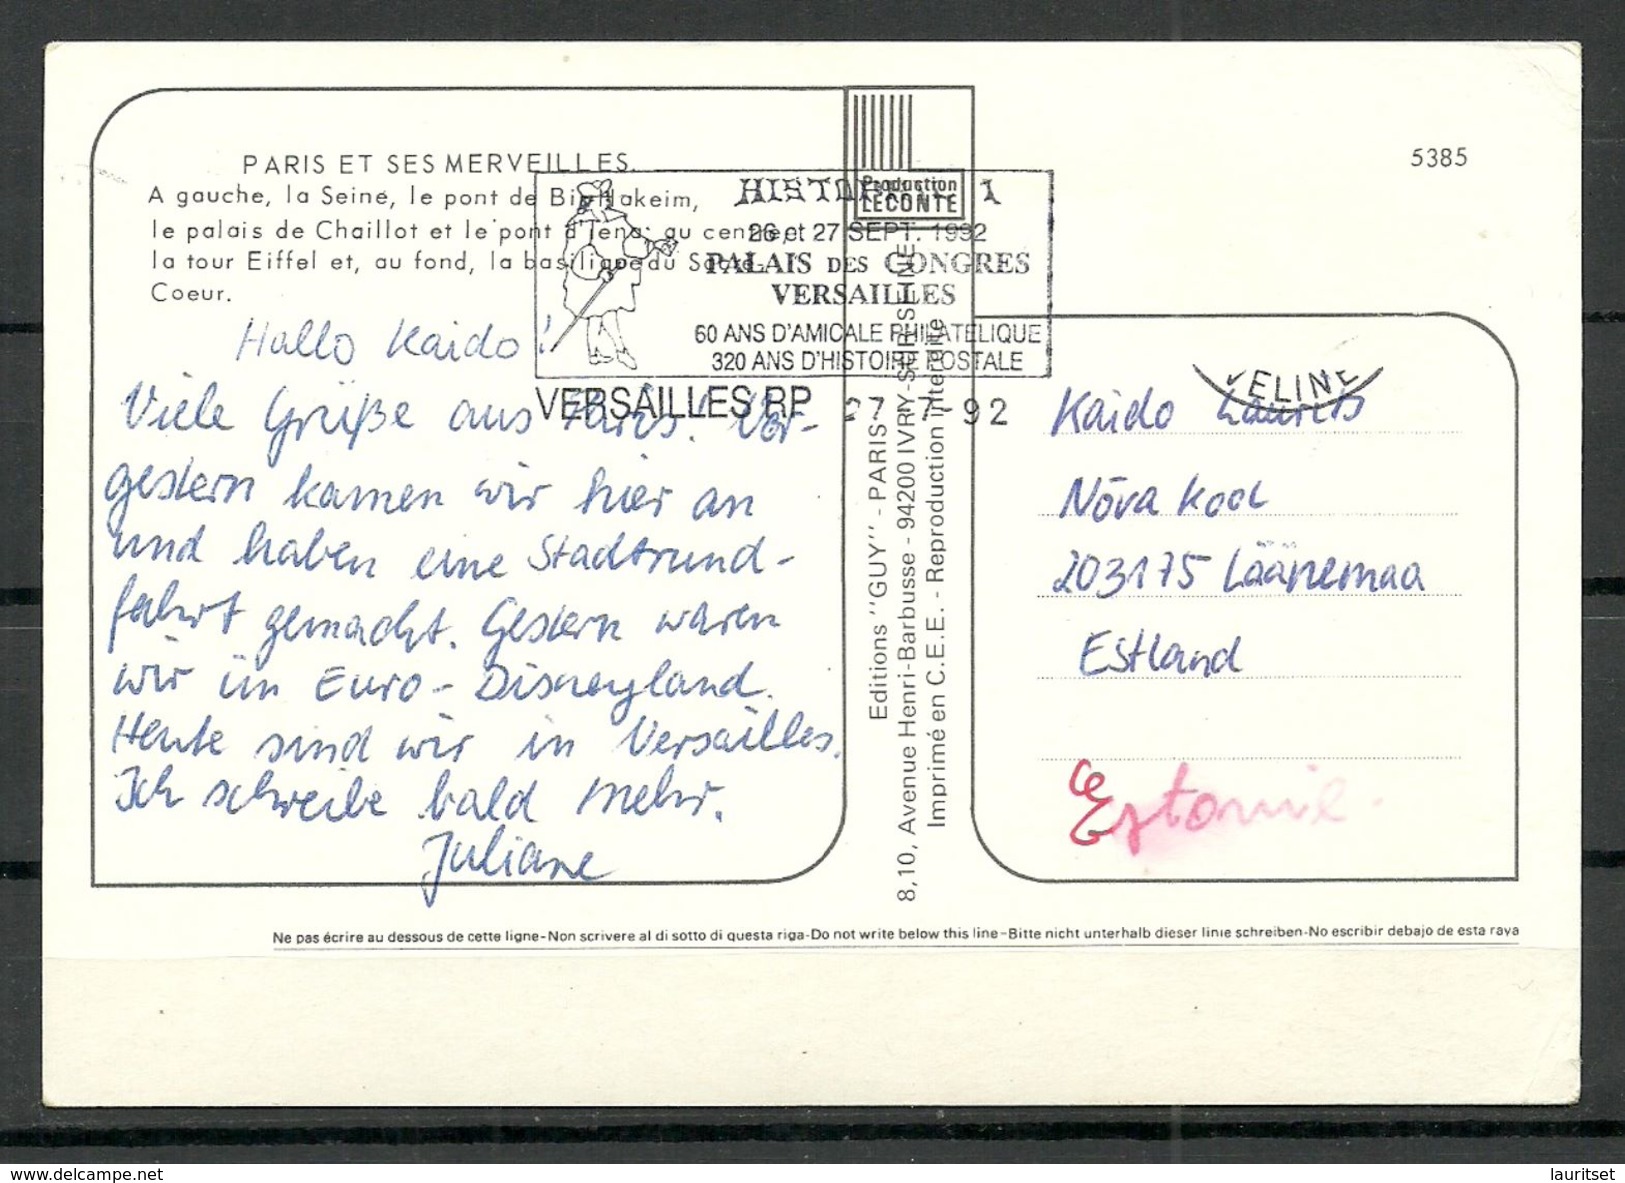 PARIS ET SES MERVEILLES.
A gauche, la Seine, le pont de Bir-Hakeim,
le palais de Chaillot et le pont d'Iena; au centre,
la tour Eiffel et, au fond, la basilique du Sacré-
Coeur.
5385
Production
LECONTE
26 et 27 SEPT. 1992
PALAIS DES CONGRES
VERSAILLES
60 ANS D'AMICALE PHILATELIQUE
320 ANS D'HISTOIRE POSTALE
VERSAILLES RP 27-7-92
Hallo Kaido!
Viele Grüße aus Paris! Vor-
gestern kamen wir hier an
und haben eine Stadtrund-
fahrt gemacht. Gestern waren
wir im Euro-Disneyland.
Heute sind wir in Versailles.
Ich schreibe bald mehr.
Juliane
Editions "GUY" - PARIS
8,10, Avenue Henri-Barbusse - 94200 IVRY-SUR-SEINE
Imprimé en C.E.E. - Reproduction interdite
VELINE
Kaido Laurits
Nõva kool
203175 Läänemaa
Estland
Estonie.
Ne pas écrire au dessous de cette ligne-Non scrivere al di sotto di questa riga-Do not write below this line-Bitte nicht unterhalb dieser linie schreiben-No escribir debajo de esta raya
delcampe.net
lauritset